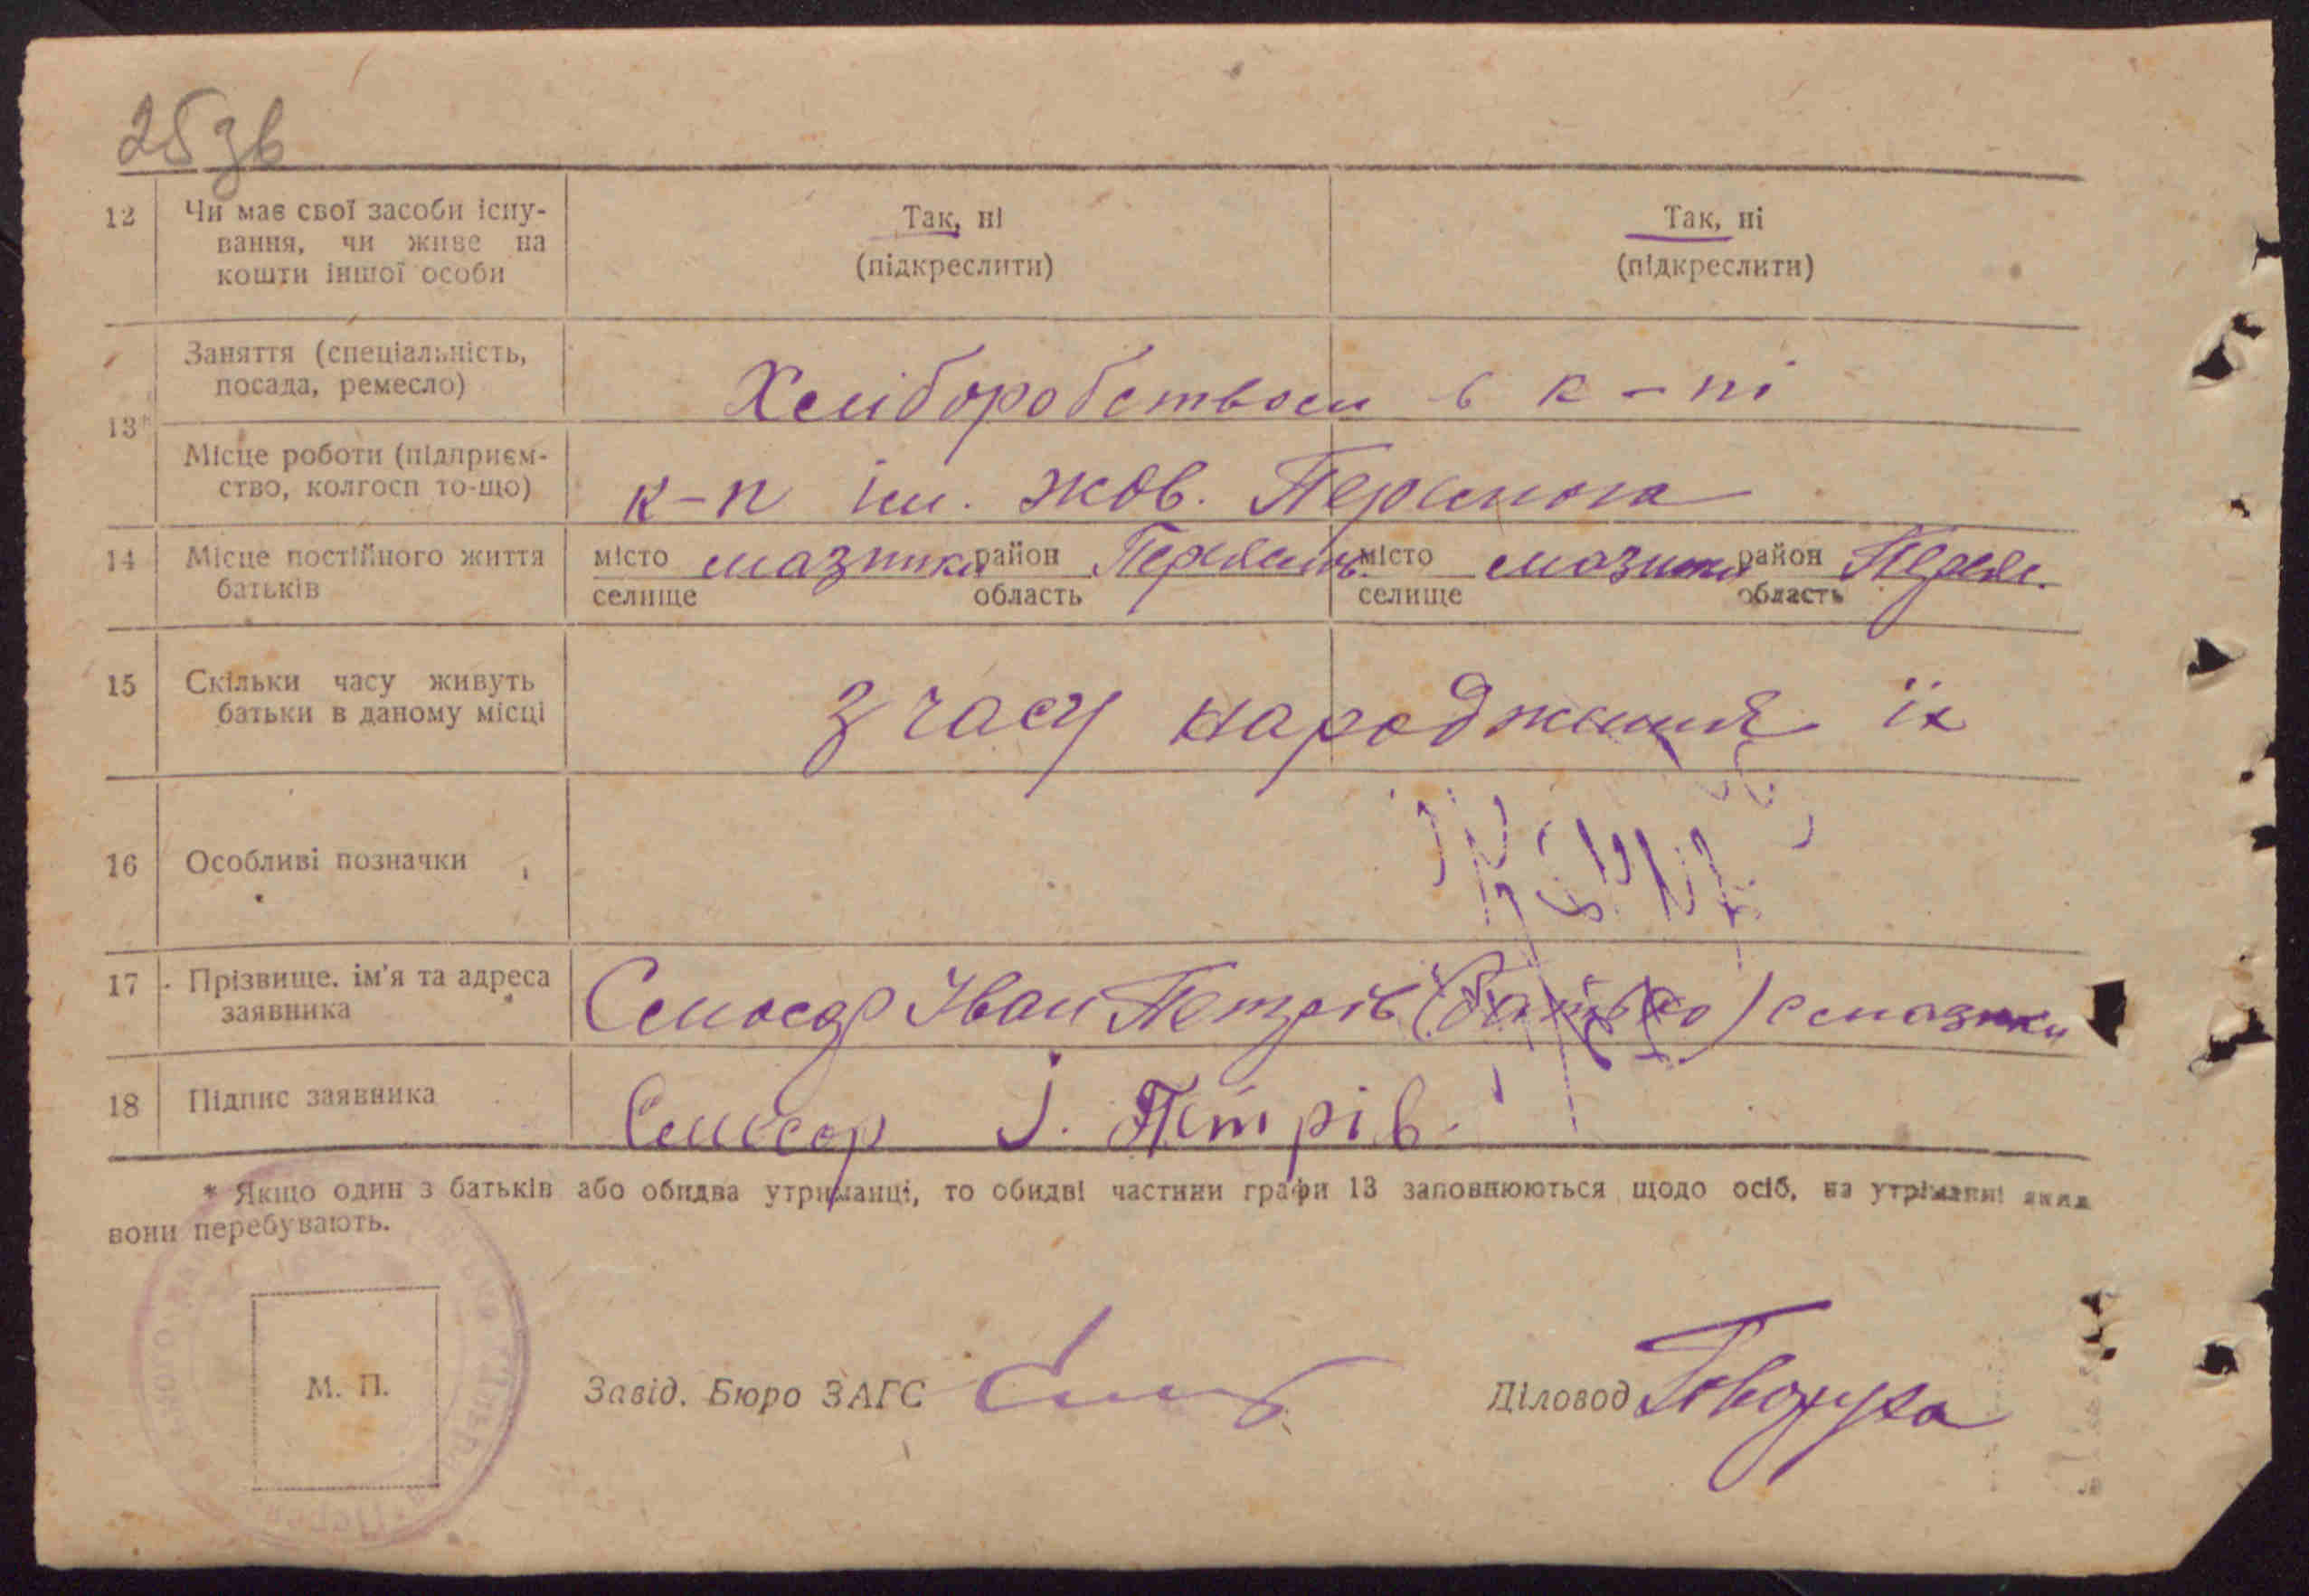 25зв
12 Чи має свої засоби існу- Так, ні Так, ні
вання, чи живе на (підкреслити) (підкреслити)
кошти іншої особи
Заняття (спеціальність,
посада, ремесло) Хліборобством в к-пі
13*
Місце роботи (підприєм-
ство, колгосп то-що) к-п ім. жов.
14 Місце постійного життя місто район місто район
батьків селище область селище область
15 Скільки часу живуть з часу народження їх
батьки в даному місці
16 Особливі позначки
17 Прізвище, ім'я та адреса Іван Петрів (батько)
заявника
18 Підпис заявника І. Петрів
* Якщо один з батьків або обидва утриманці, то обидві частини графи 13 заповнюються щодо осіб, на утріманні яких
вони перебувають.
М. П. Завід. Бюро ЗАГС Діловод